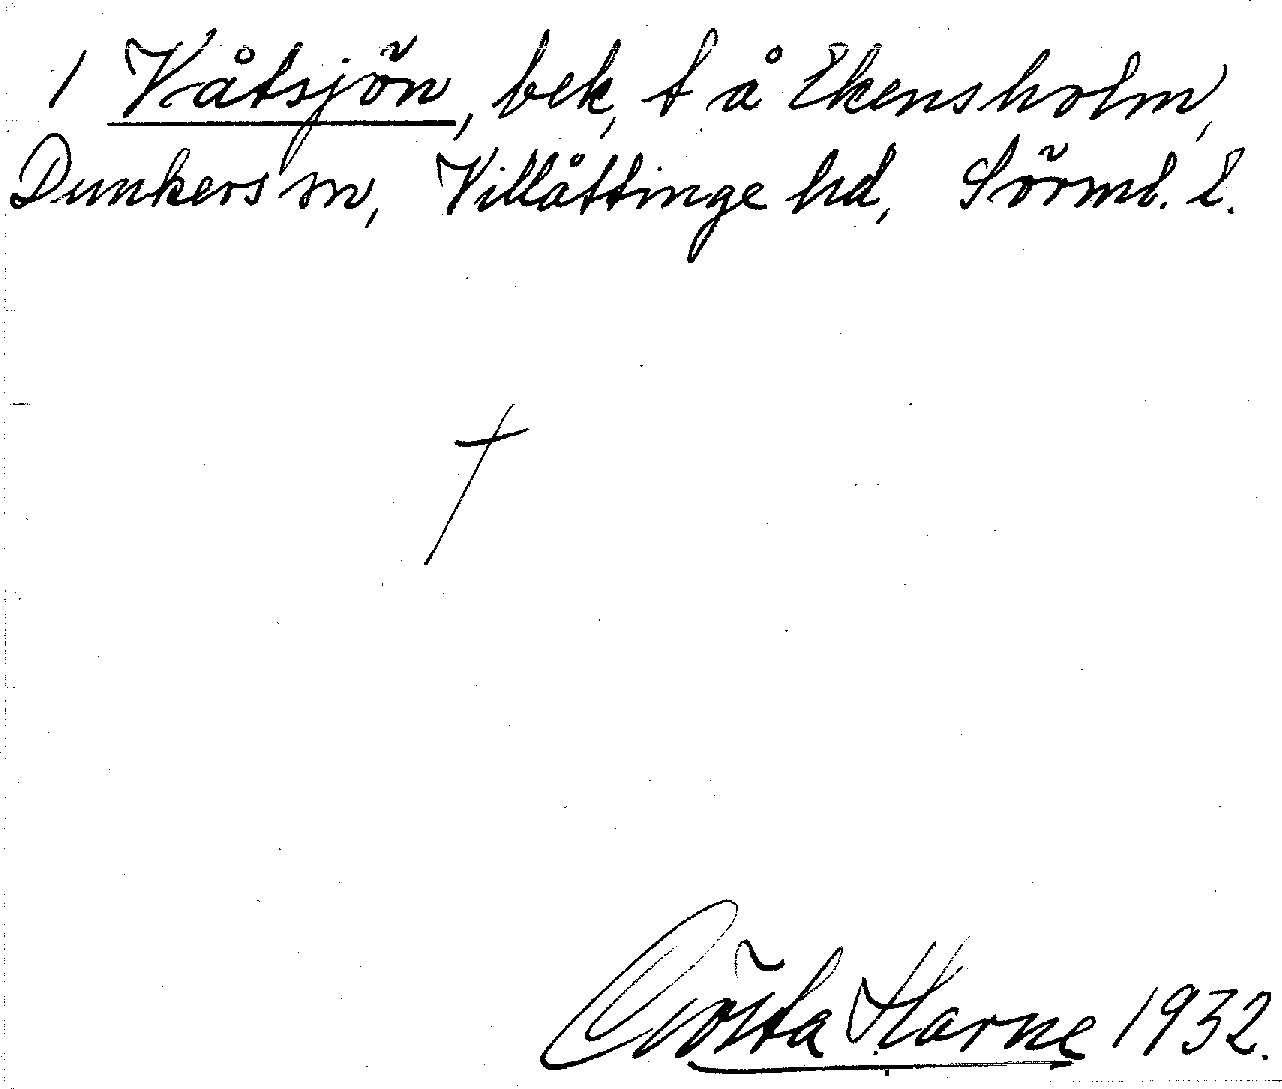 1 Våtsjön, bek, t å Ekensholm,
Dunkers sn, Villåttinge hd, Sörml. l.
†
Gösta Harne 1932.